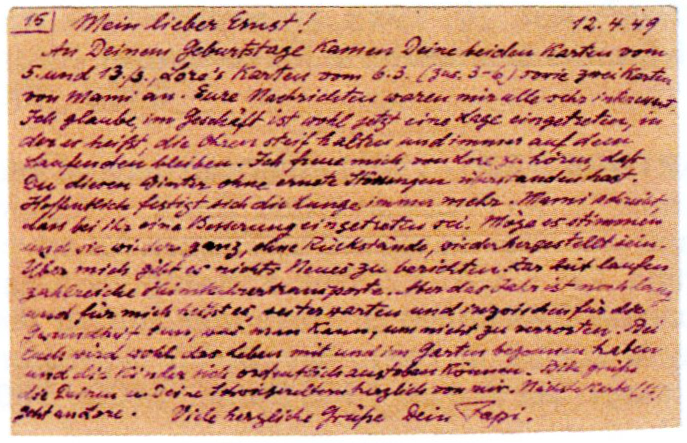 15 Mein lieber Ernst! 12.4.49
An Deinem Geburtstage kamen Deine beiden Karten vom
5. und 13./3., Lore's Karten vom 6.3. (zus. 3-6) sowie zwei Karten
von Mami an. Eure Nachrichten waren mir alle sehr interessant.
Ich glaube, im Geschäft ist wohl jetzt eine Lage eingetreten, in
der es heißt, die Ohren steif halten und immer auf dem
Laufenden bleiben. Ich freue mich, von Lore zu hören, daß
Du diesen Winter ohne ernste Störungen überstanden hast.
Hoffentlich festigt sich die Lunge immer mehr. Mami schreibt,
daß bei ihr eine Besserung eingetreten sei. Möge es stimmen
und sie wieder ganz, ohne Rückstände, wiederhergestellt sein.
Über mich gibt es nichts Neues zu berichten. Zur Zeit laufen
zahlreiche Heimkehrertransporte. Aber das Jahr ist noch lang
und für mich heißt es, weiter warten und inzwischen für die
Gesundheit tun, was man kann, um nicht zu verrosten. Bei
Euch wird wohl das Leben mit und im Garten begonnen haben
und die Kinder sich ordentlich austoben können. Bitte grüße
die Deinen u. Deine Schwiegereltern herzlich von mir. Nächste Karte
geht an Lore. Viele herzliche Grüße Dein Papi.